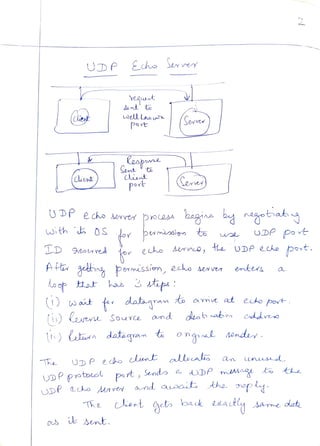 2
UDP Echo Server
request
sent to
well known
port
Client
Server
Response
Sent to
Client
port
Client
Server
UDP echo server process begins by negotiating
with its OS for permission to use UDP port
ID reserved for echo service, the UDP echo port.
After getting permission, echo server enters a
loop that has 3 steps:
(i) wait for datagram to arrive at echo port.
(ii) Reverse source and destination address
(iii) Return datagram to original sender.
The UDP echo client allocates an unused
UDP protocol port, sends a UDP message to the
UDP echo server and awaits the reply.
The client gets back exactly same data
as it sent.